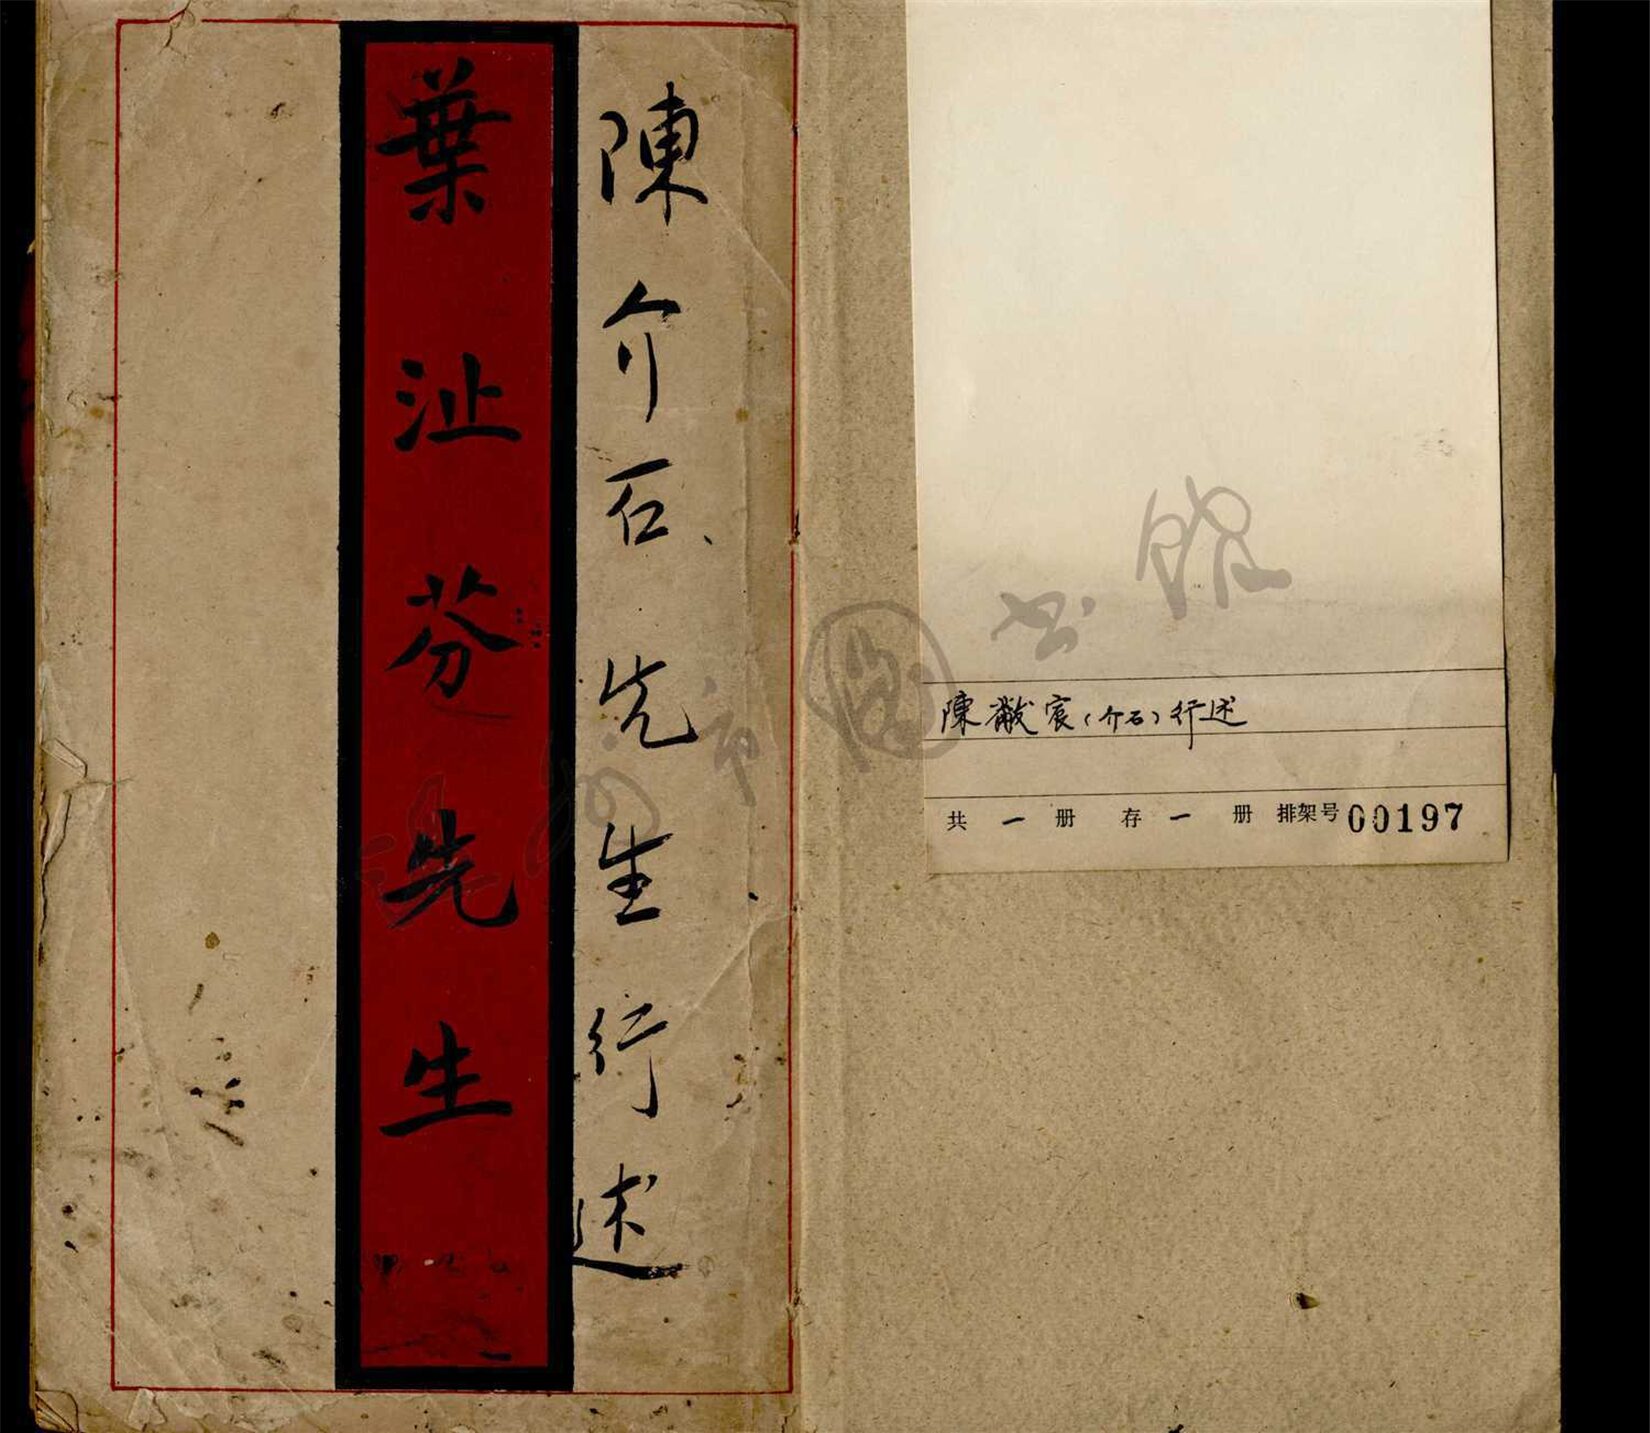 陳介石先生行述
葉沚芬先生
陳黻宸（介石）行述
共 一 册 存 一 册 排架号00197